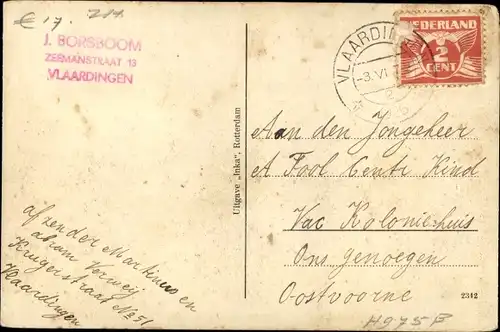 € 17. 214
J. BORSBOOM
ZEEMANSTRAAT 13
VLAARDINGEN
VLAARDIN
3. VI
NEDERLAND
2
CENT
Aan den Jongeheer
A Fool Centi Kind
Vac Koloniehuis
Ons genoegen
Oostvoorne
Uitgave „Inka", Rotterdam
afzender Martinus en
Abram Verweij
Krugerstraat No 51
Vlaardingen
2312
H975F